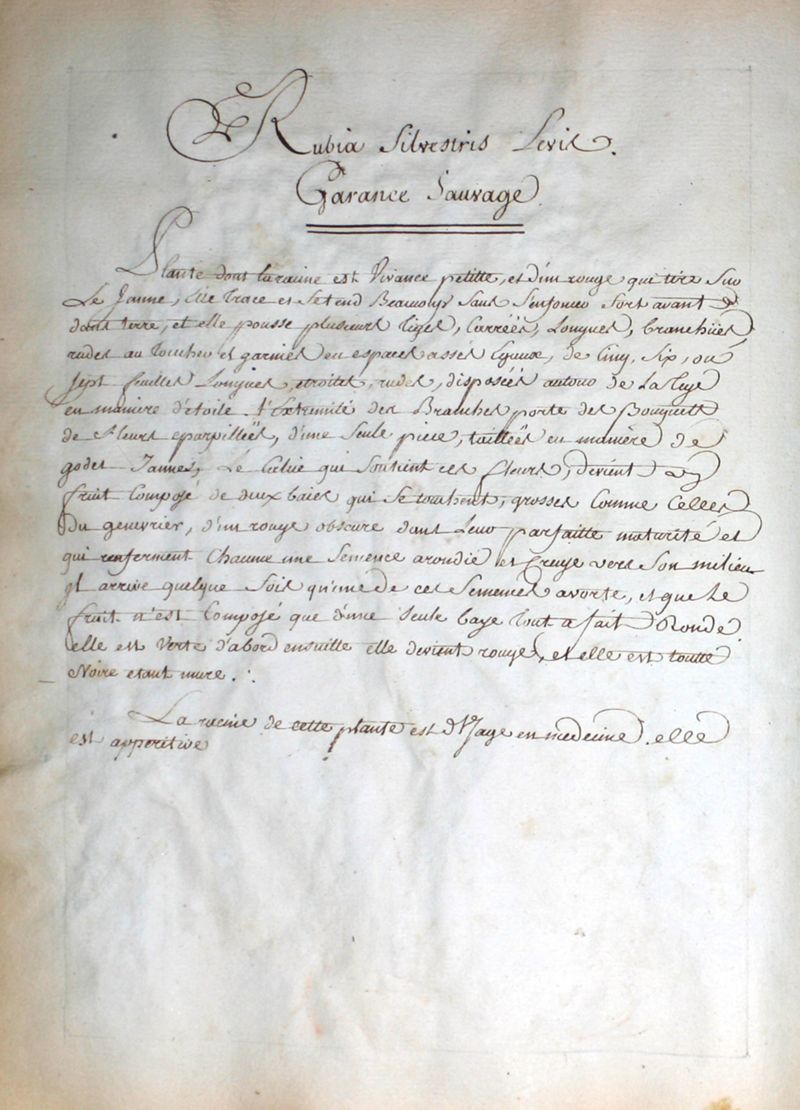 Rubia Silvestris Levis.
Garance Sauvage.
Plante dont la racine est Vivance petitte, et d'un rouge qui tire sur
Le Jaune, Elle Trace et Setend Beaucoup Sans Senfoncer fort avant
dans terre, et elle pousse plusieurs tiges, Carrées, Longues, branchües,
rudes au toucher et garnies en espaces assés Egeaux, de Cinq, Six, ou
Sept feuilles Longues, etroites, rudes, disposées autour de La tige
en maniere d'étoile. l'Extremité des Branches porte des Bouquets
de fleurs eparpilleës, d'une Seule piece, tailleës en maniere de
godet Jaunes, Le Calice qui Soutient ces fleurs, devient un
fruit Composé de deux baies qui Se touchent, grosses Comme Celles
Du genevrier, d'un rouge obscure dans Leur parfaitte maturité et
qui renferment Chacune une Semence arondie et Creuse vers Son milieu
Il arrive quelque fois qu'une de ces Semences avorte, et que Le
fruit n'est Composé que d'une Seule baye Tout a fait Ronde
elle est Verte d'abord ensuitte elle devient rouge, et elle est toutte
Noire etant mure.
La racine de cette plante est d'Usage en medecine. elle
est apperitive